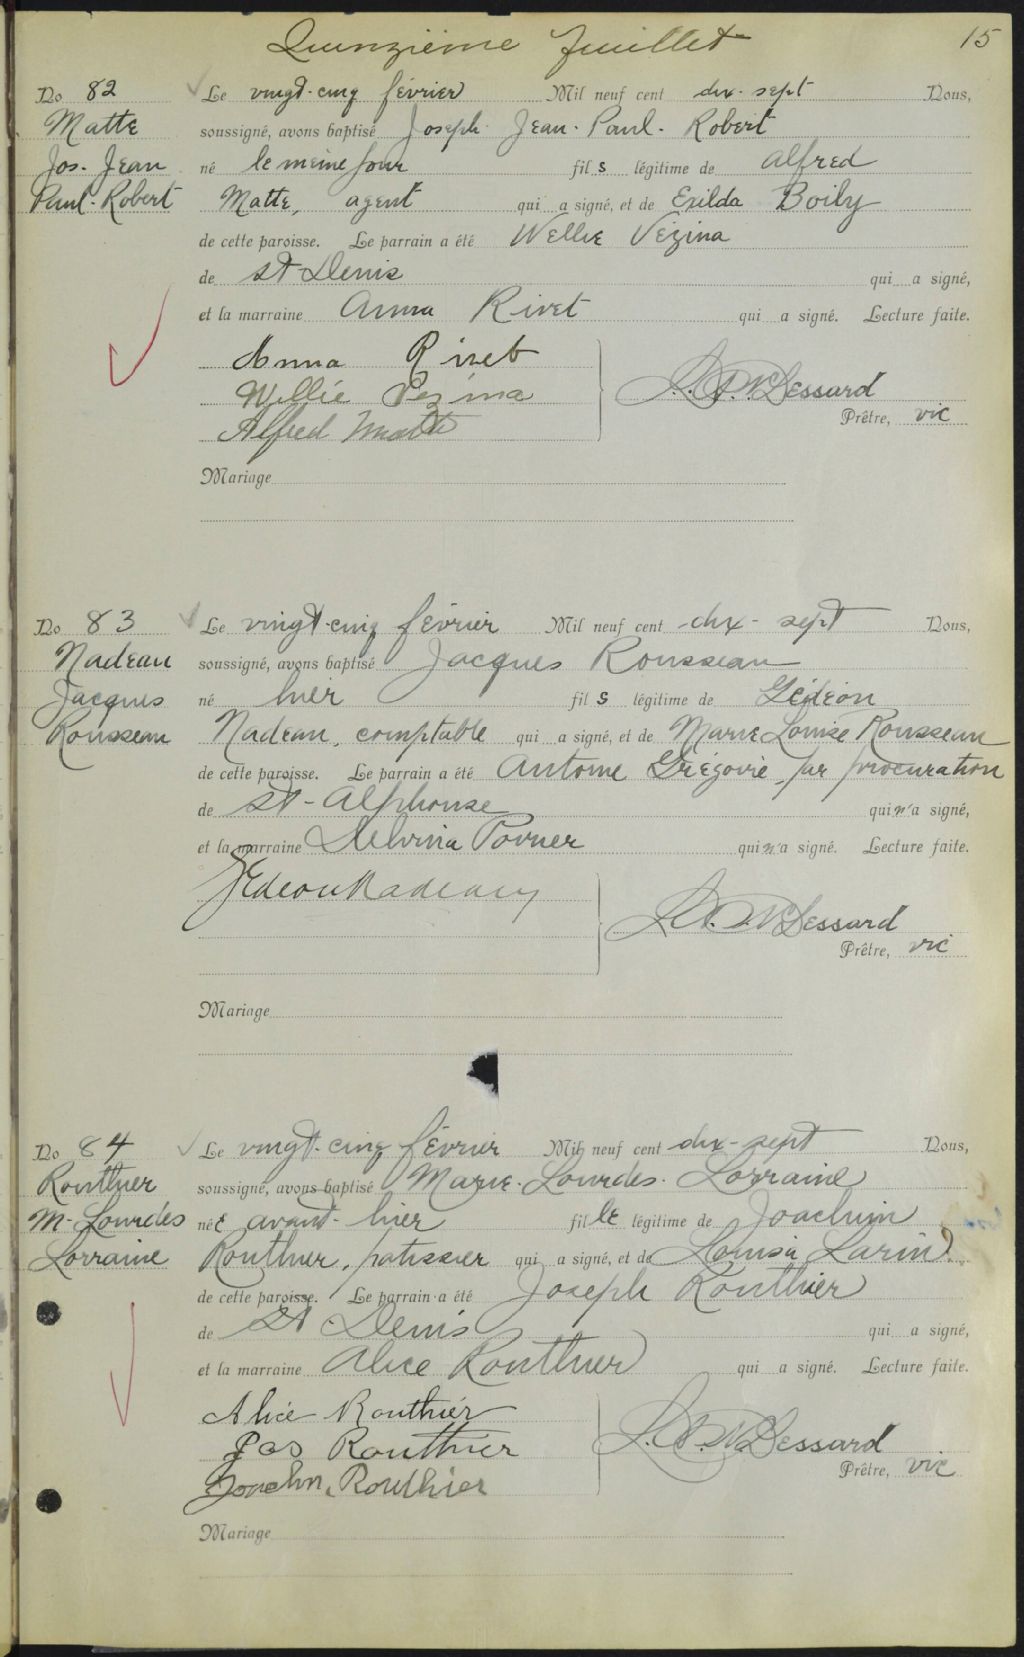 Quinzième feuillet 15
No 82 Le vingt-cinq février Mil neuf cent dix-sept Nous,
Matte soussigné, avons baptisé Joseph. Jean. Paul. Robert
Jos. Jean né le même jour fils légitime de Alfred
Paul-Robert Matte, agent qui a signé, et de Exilda Boily
de cette paroisse. Le parrain a été Wellie Vézina
de St Denis qui a signé,
et la marraine Anna Rivet qui a signé. Lecture faite.
Anna Rivet
Willie Vezina Dessard
Alfred Matte Prêtre, vic
Mariage
No 83 Le vingt-cinq février Mil neuf cent dix-sept Nous,
Nadeau soussigné, avons baptisé Jacques Rousseau
Jacques né hier fils légitime de Gédéon
Rousseau Nadeau, comptable qui a signé, et de Marie Louise Rousseau
de cette paroisse. Le parrain a été Antoine Grégoire par procuration
de St-Alphonse qui n'a signé,
et la marraine Delvina qui n'a signé. Lecture faite.
Gedeon Nadeau
Dessard
Prêtre, vic
Mariage
No 84 Le vingt-cinq février Mil neuf cent dix-sept Nous,
Routhier soussigné, avons baptisé Marie. Lourdes. Lorraine
M-Lourdes née avant-hier fille légitime de Joachim
Lorraine Routhier, patissier qui a signé, et de Louisa Larin
de cette paroisse. Le parrain a été Joseph Routhier
de St Denis qui a signé,
et la marraine Alice Routhier qui a signé. Lecture faite.
Alice Routhier
Jos Routhier Dessard
Routhier Prêtre, vic
Mariage